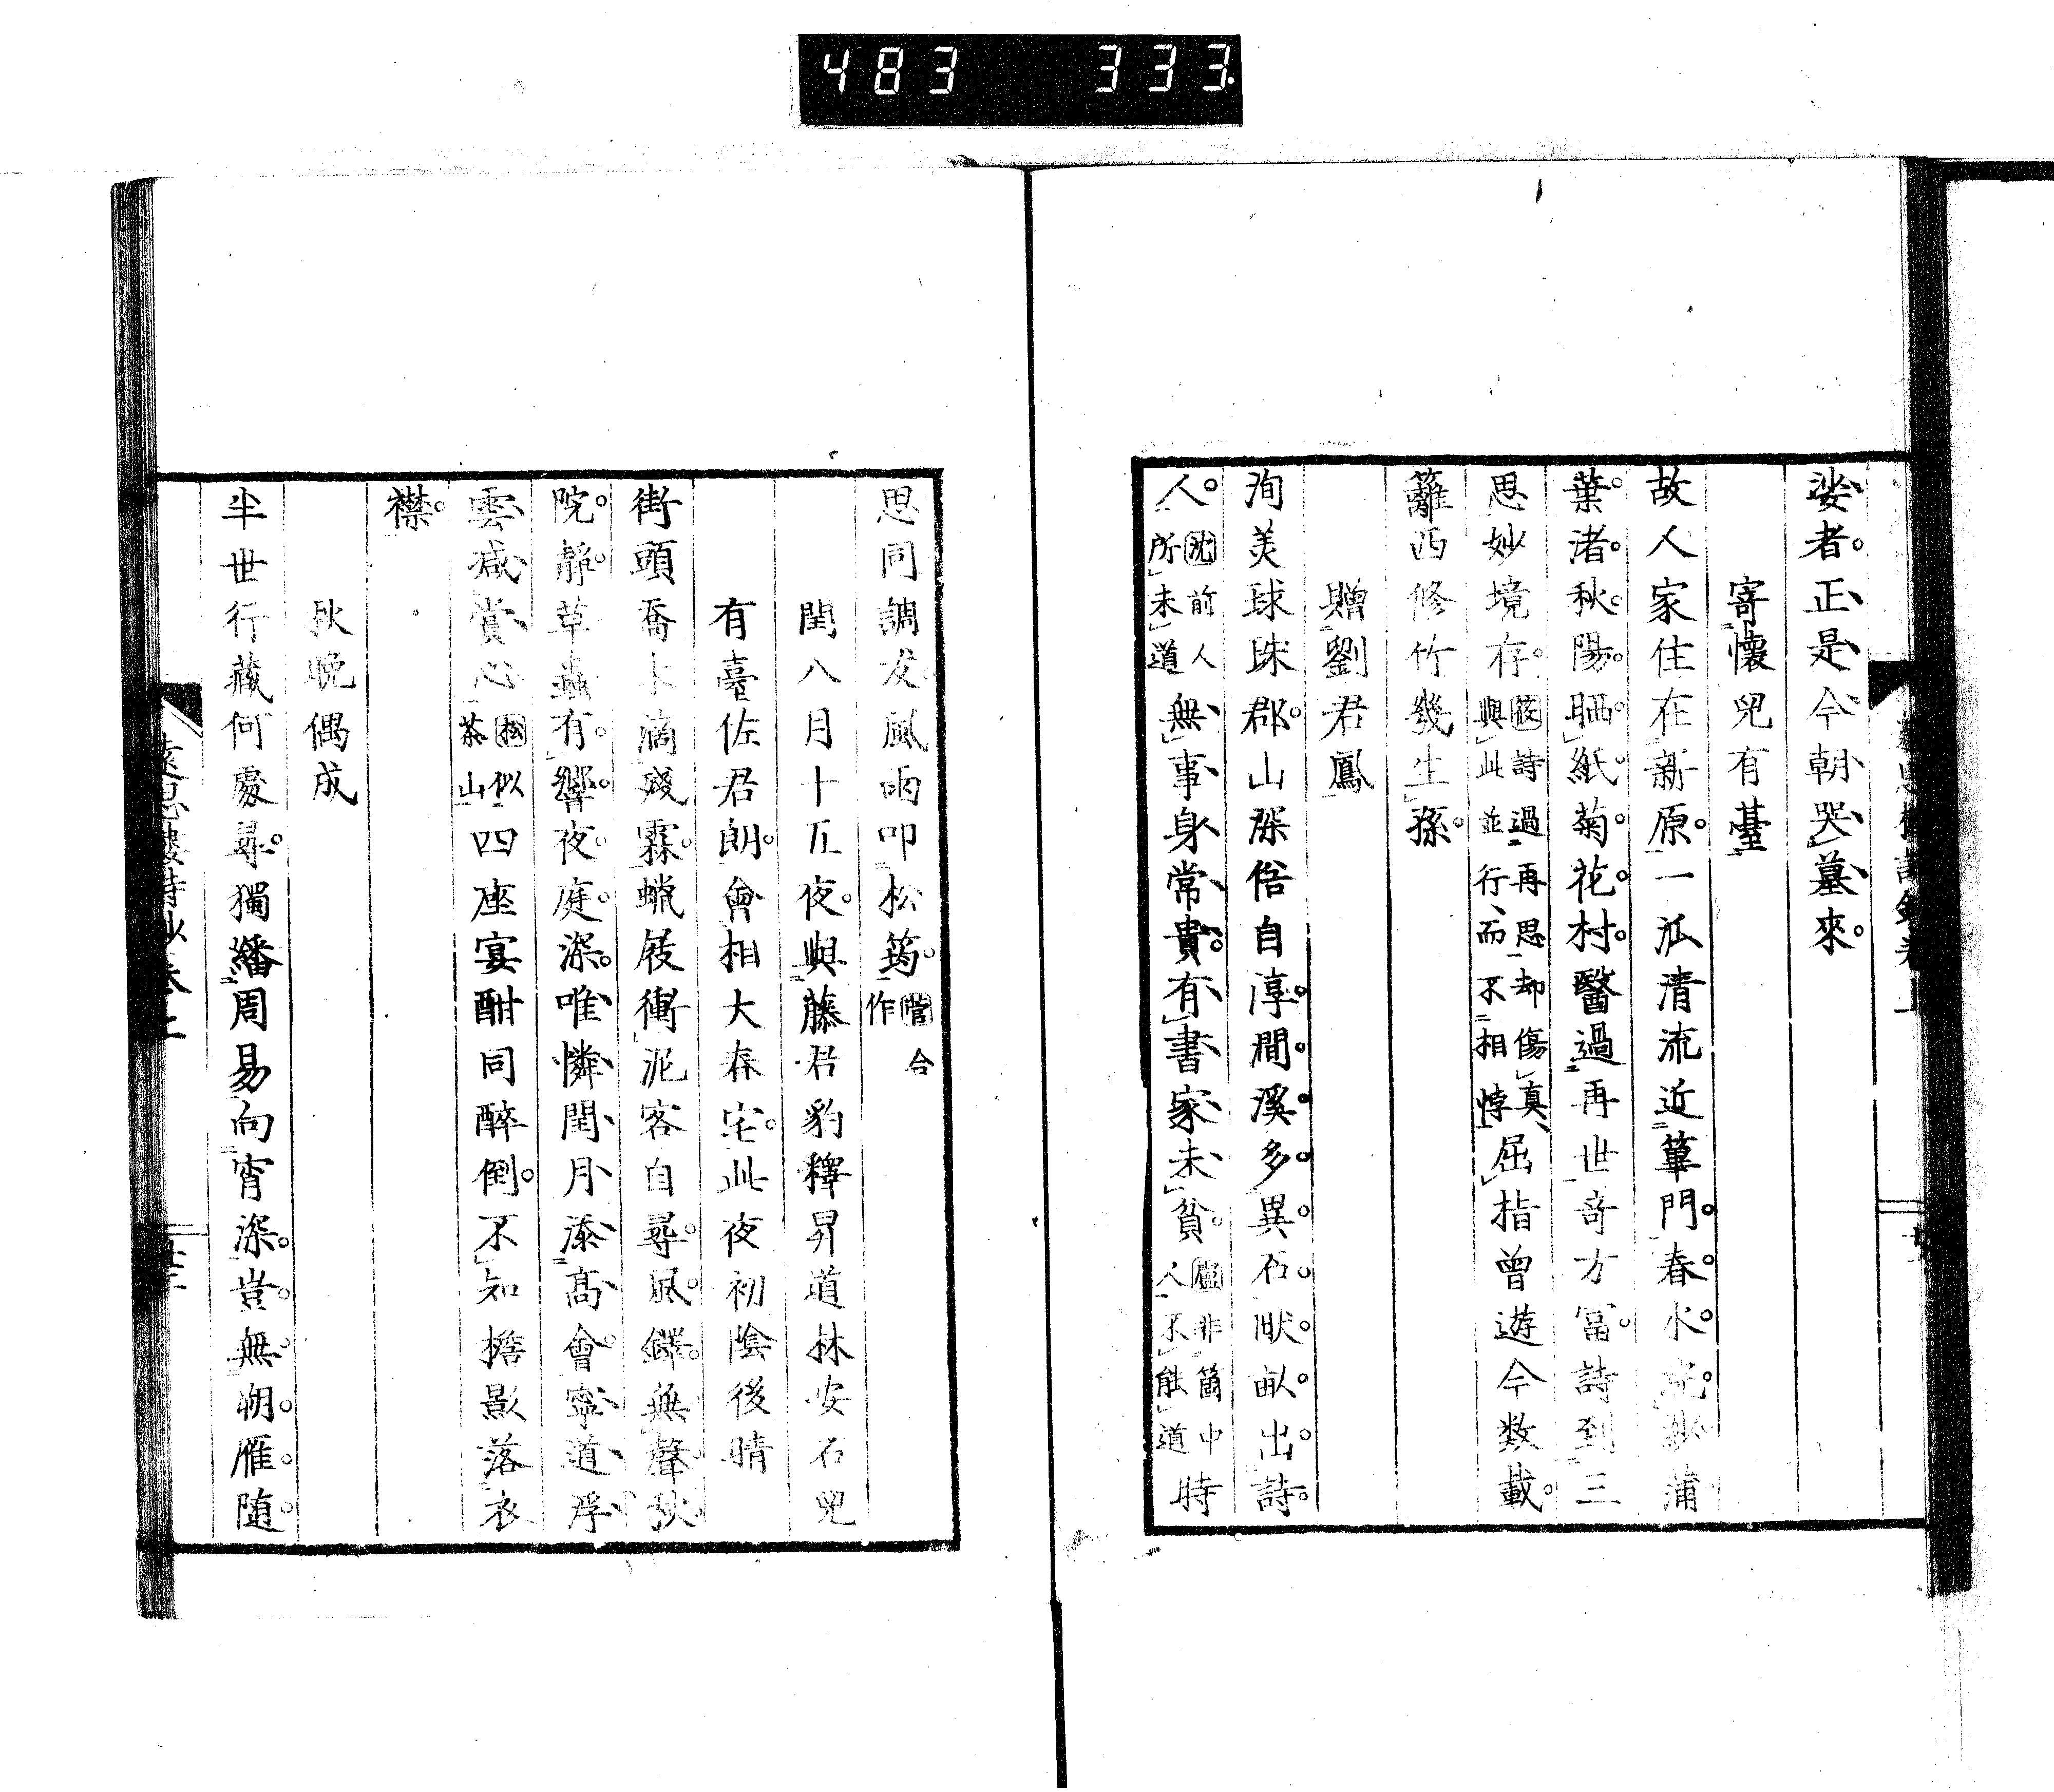 483 333
娑者。正是今朝哭墓來。
寄懷兒有臺
故人家住在新原。一派清流近篳門。春水蒲
葉渚。秋陽晒紙菊花村。醫過再世奇方富。詩到三
思妙境存。詩過再思却傷真、與此並行、而不相悖屈指曾遊今数載。
籬西修竹幾生孫。
贈劉君鳳
洵美球琳郡。山深俗自淳。澗溪多異石。畎畝出詩
人。沈前人所未道無事身常貴。有書家未貧。非箇中人不能道時
思同調友。風雨叩松筠。菅合作
閏八月十五夜。與藤君豹釋昇道林安石兒
有臺佐君朗。會相大春宅。此夜初陰後晴
街頭喬木滴殘霖。蠟屐衝泥客自尋。風鐸無聲秋
院靜。草蟲有響夜庭深。唯憐閏月添高會。寧道浮
雲減賞心松似茶山四座宴酣同醉倒。不知檐影落衣
襟。
秋晚偶成
半世行藏何處尋。獨繙周易向宵深。豈無朔雁随
遠思樓詩鈔卷上